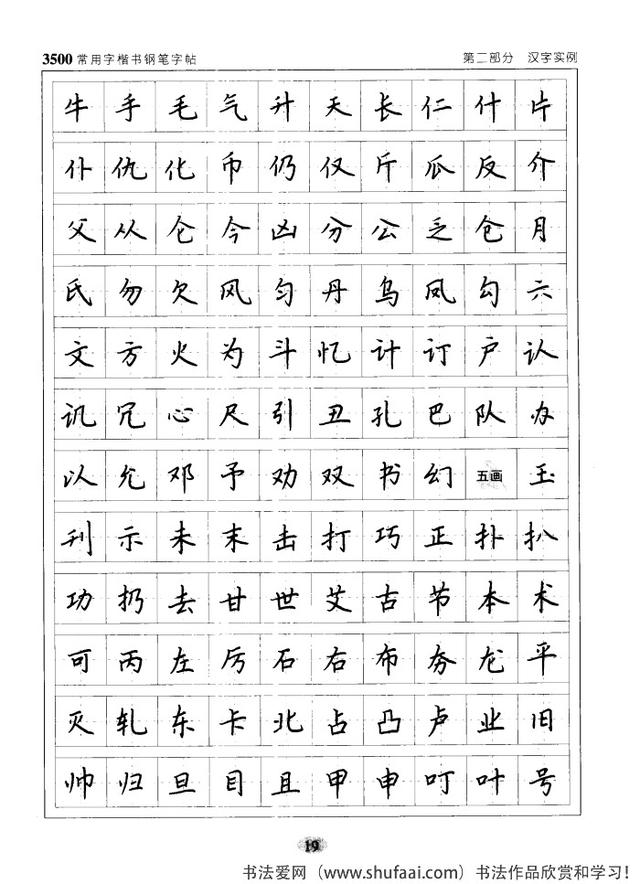 3500常用字楷书钢笔字帖 第二部分 汉字实例
牛手毛气升夭长仁什片
仆仇化币仍仅斤瓜反介
父从仑今凶分公乏仓月
氏勿欠风匀丹乌凤勾六
文方火为斗忆计订户认
讥冗心尺引丑孔巴队办
以允邓予劝双书幻五画玉
刊示未末击打巧正扑扒
功扔去甘世艾古节本术
可丙左厉石右布夯龙平
灭轧东卡北占凸卢业旧
帅归旦目且甲申叮叶号
19
书法爱网（www.shufaai.com）书法作品欣赏和学习！